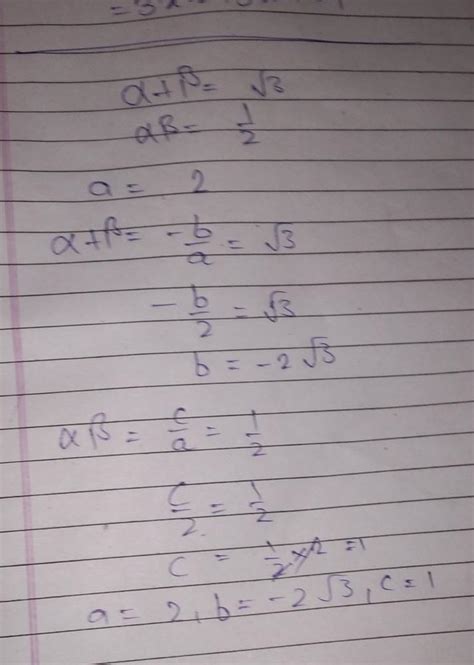 α+β= √3
αβ= 1/2
a = 2
α+β= -b/a = √3
-b/2 = √3
b = -2√3
αβ = c/a = 1/2
c/2 = 1/2
c = 1/2 × 2 = 1
a = 2, b = -2√3, c = 1